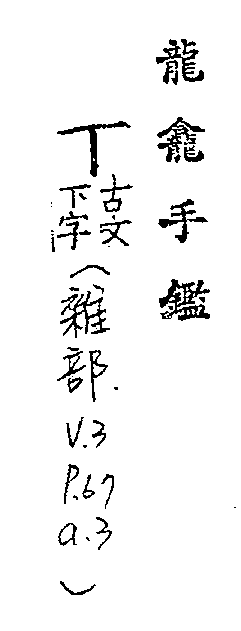 龍龕手鑑
丅古文下字（雜部.V.3P.67a.3）